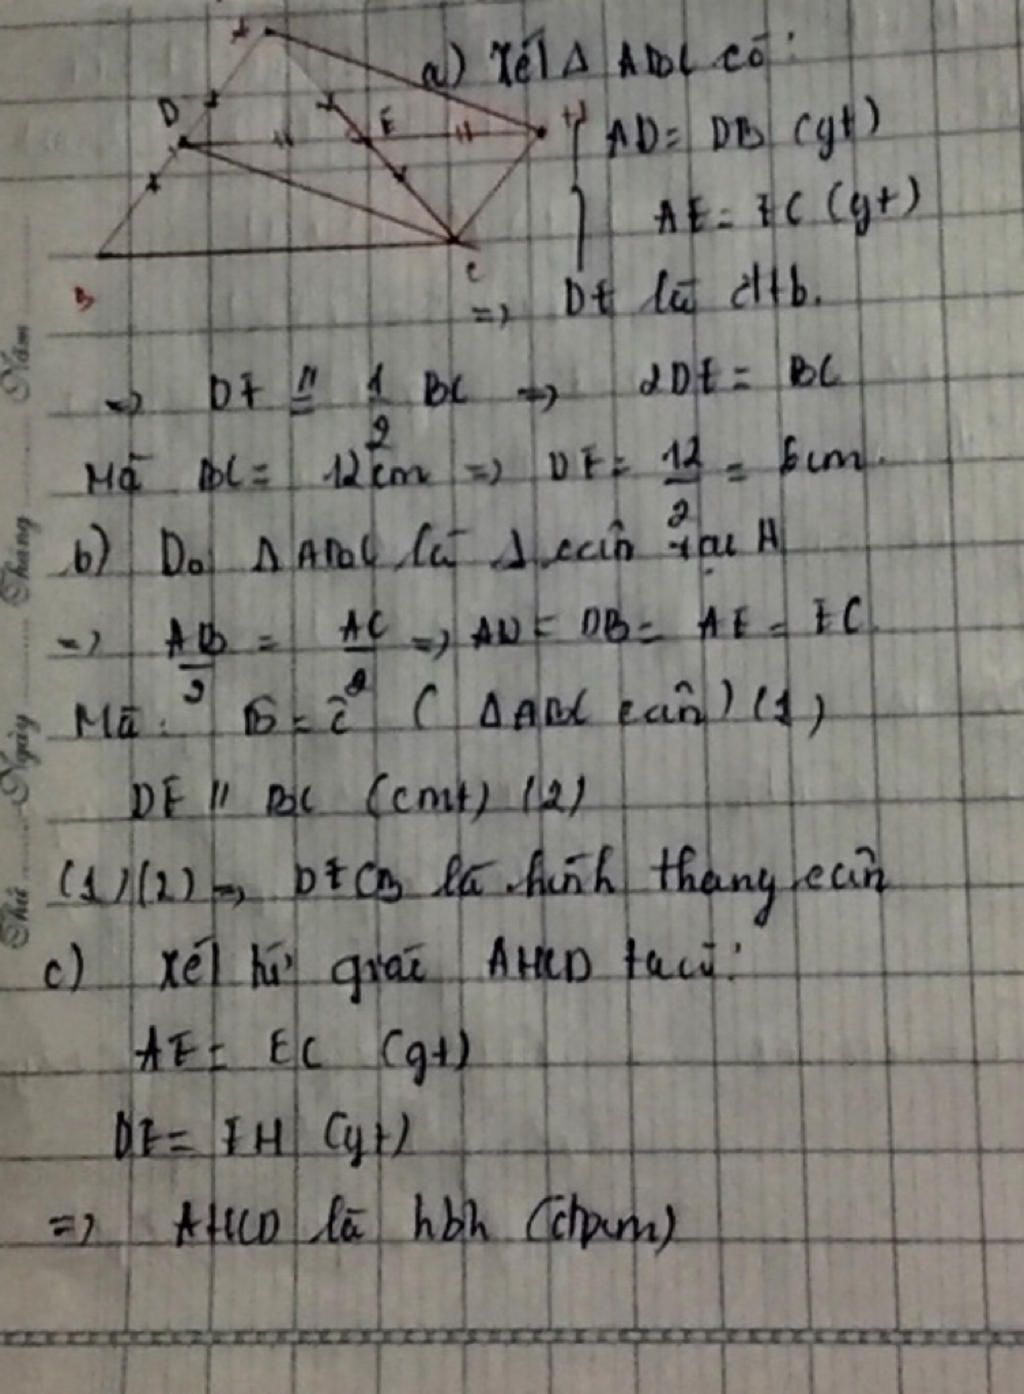 A
D
E
H
B
C
a) Xét Δ ABC có:
AD = DB (gt)
AE = EC (gt)
=> DE là đtb.
=> DE // = 1/2 BC => 2DE = BC
Mà BC = 12cm => DE = 12/2 = 6cm.
b) Do Δ ABC là Δ cân tại A
=> AB/2 = AC/2 => AD = DB = AE = EC
Mà: B̂ = Ĉ (ΔABC cân) (1)
DE // BC (cmt) (2)
(1)(2) => DECB là hình thang cân
c) Xét tứ giác AHCD ta có:
AE = EC (gt)
DE = EH (gt)
=> AHCD là hbh (đpcm)
Thứ ........ Ngày ........ Tháng ........ Năm ........